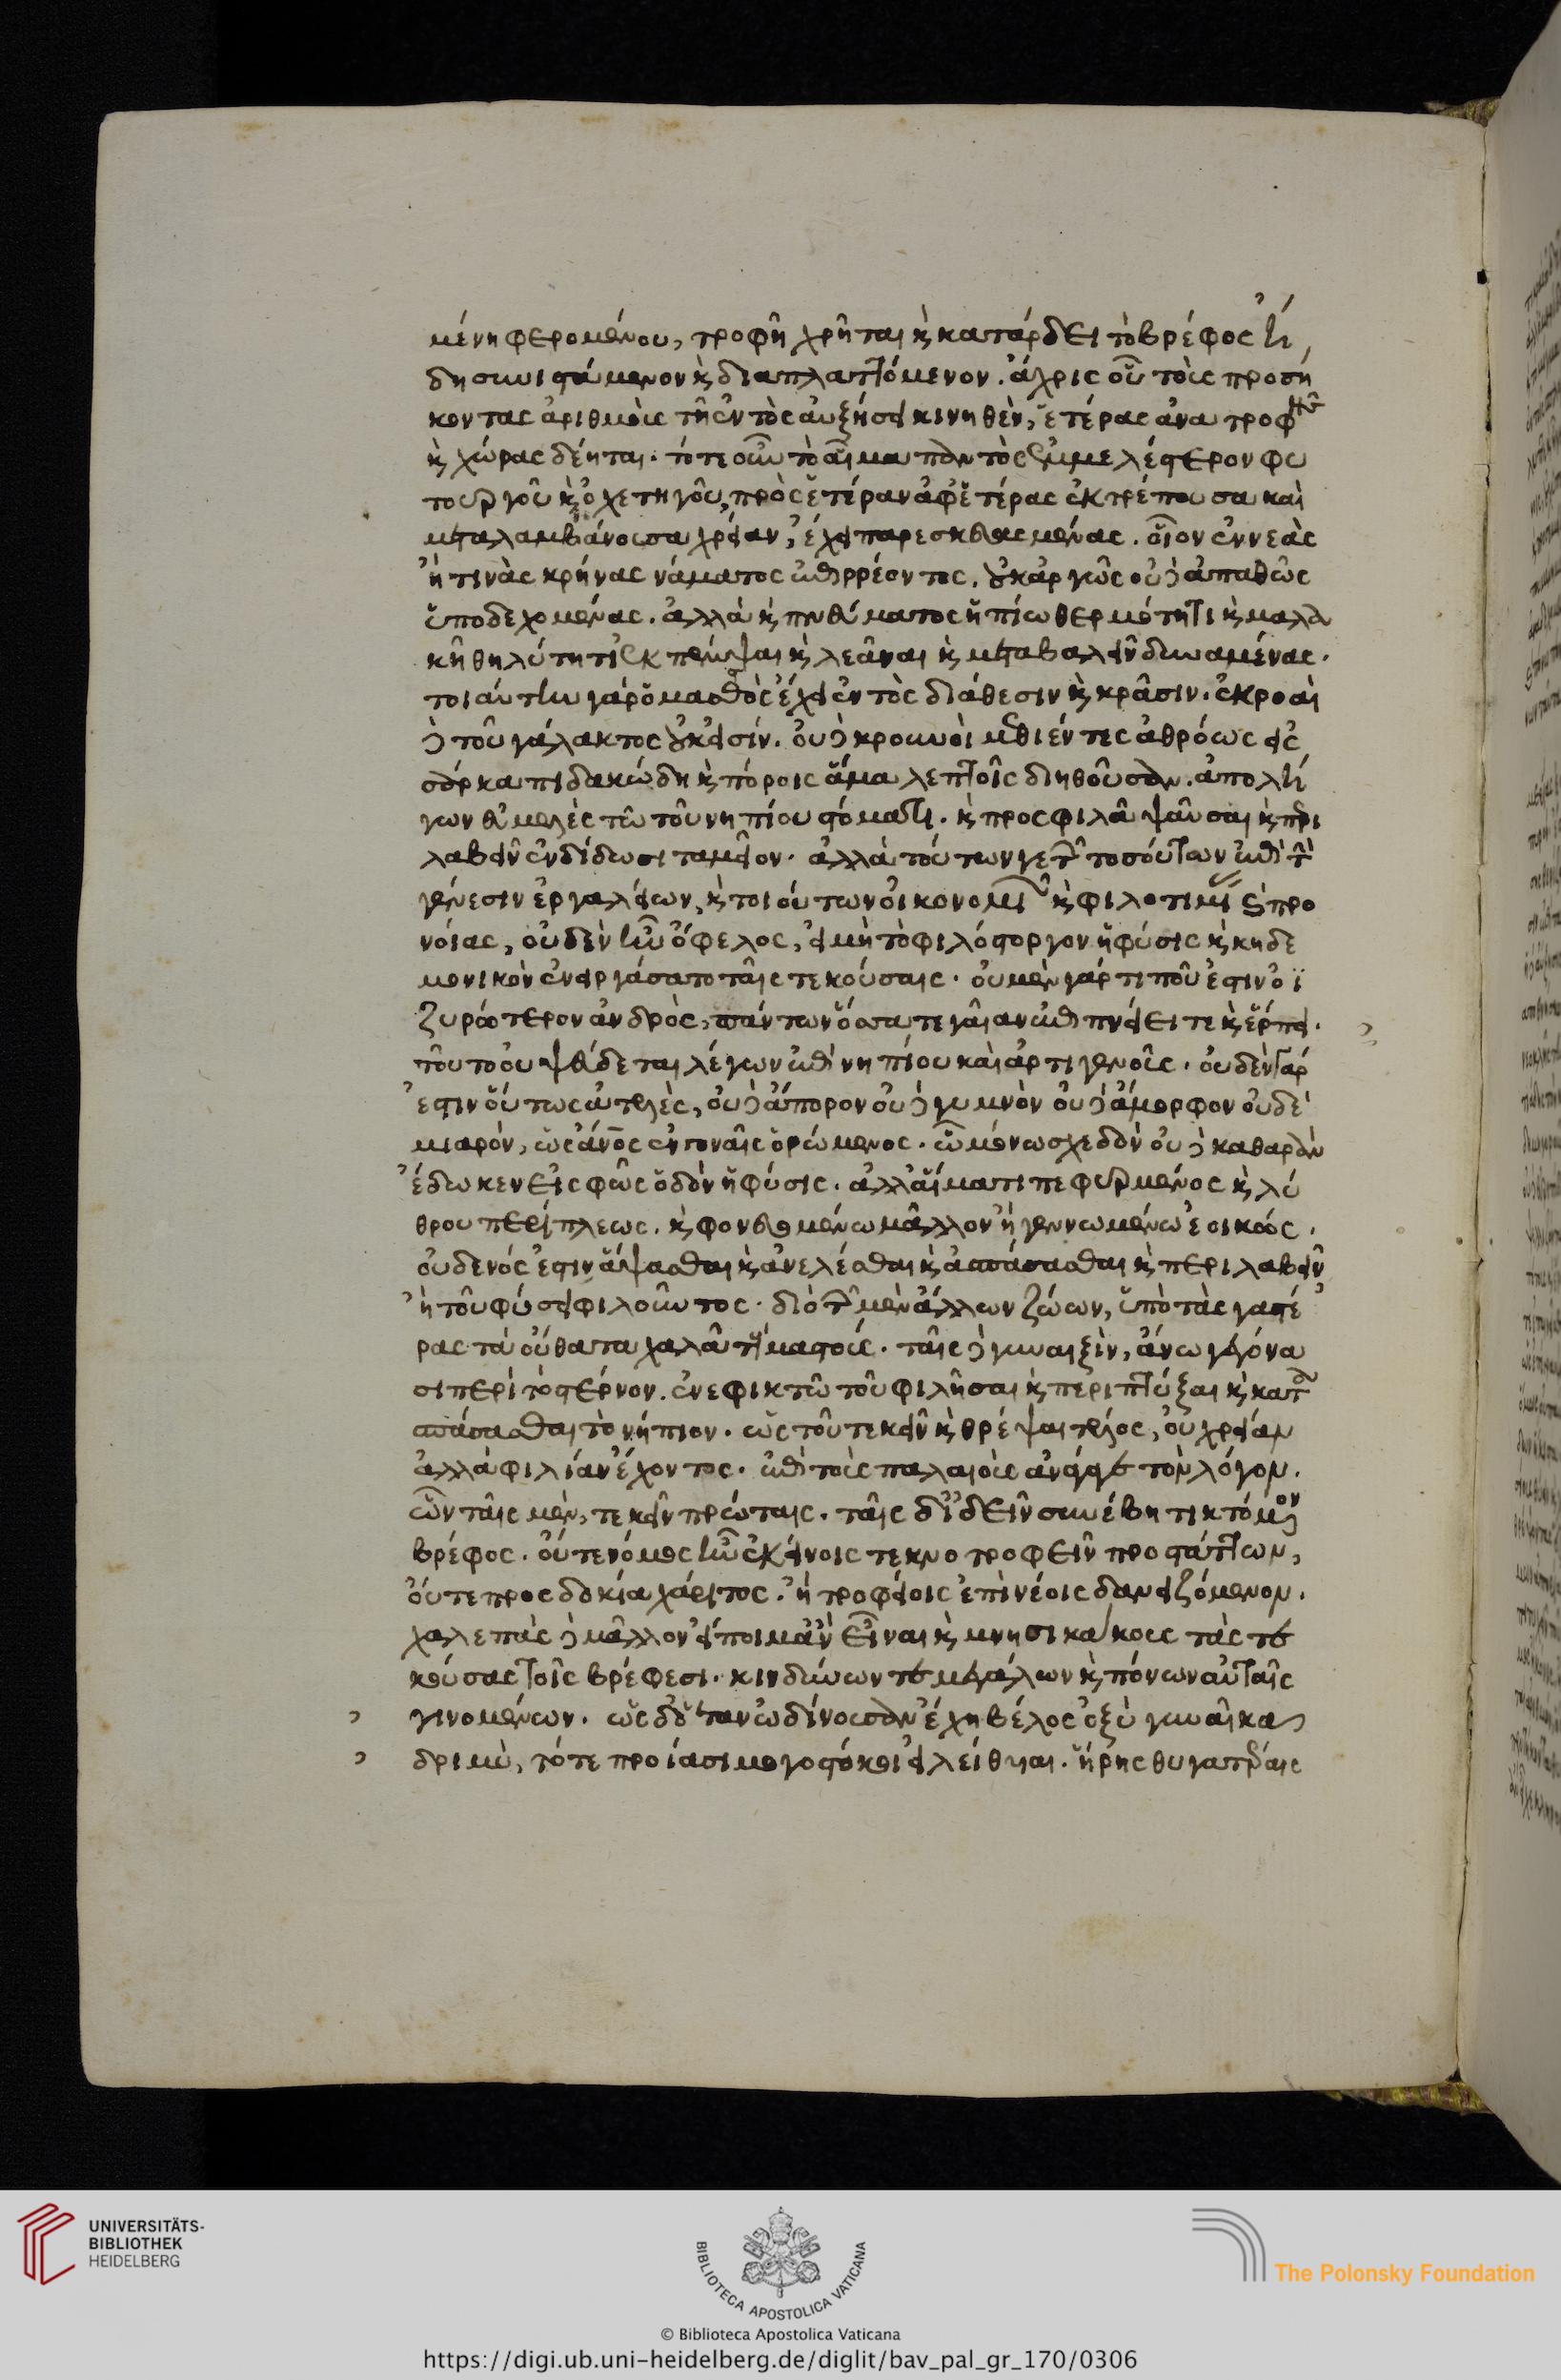 μένη φερομένου, τροφῆ χρῆται καὶ κατάρδει τὸ βρέφος ἤ
δη συνιστάμενον καὶ διαπλαττόμενον. ἄχρις οὗ τοὺς προσή
κοντας ἀριθμοὺς τῆς ἐντὸς αὐξήσει κινηθὲν, ἑτέρας ἀνατροφῆς
καὶ χώρας δέηται. τότε οὖν τὸ αἷμα παντὸς ἐμμελέστερον φυ
τουργοῦ καὶ ὀχετηγοῦ, πρὸς ἑτέραν ἀφ' ἑτέρας ἐκτρέπουσα καὶ
μεταλαμβάνουσα χρείαν, ἔχει παρεσκευασμένας. οἷον ἐννεὰς
ἤ τινὰς κρήνας νάματος ἐπιρρέοντος, οὐκ ἀργῶς οὐδ' ἀπαθῶς
ὑποδεχομένας. ἀλλὰ καὶ πνεύματος ἠπίω θερμότητι καὶ μαλα
κῆ θηλύτητι ἐκπέψαι καὶ λεᾶναι καὶ μεταβαλεῖν δυναμένας.
τοιαύτην γὰρ ὁ μασθὸς ἔχει ἐντὸς διάθεσιν καὶ κρᾶσιν. ἐκροαὶ
δὲ τοῦ γάλακτος οὐκ εἰσίν. οὐδὲ κρουνοὶ μεθιέντες ἀθρόως εἰς
σάρκα πιδακώδη καὶ πόροις ἅμα λεπτοῖς διηθοῦσαν. ἀπολή
γων εὐμενὲς τῶ τοῦ νηπίου στόματι. καὶ προσφιλὰ ψαῦσαι καὶ περι
λαβεῖν ἐνδίδωσι ταμεῖον. ἀλλὰ τούτων γε τῶν τοσούτων ἐπὶ τὴν
γένεσιν ἐργαλείων, καὶ τοιούτων οἰκονομιῶν καὶ φιλοτιμίας καὶ προ
νοίας, οὐδὲν ἦν ὄφελος, εἰ μὴ τὸ φιλόστοργον ἡ φύσις καὶ κηδε
μονικὸν ἐνειργάσατο ταῖς τεκούσαις. οὐ μὲν γάρ τι ποῦ ἐστιν ὀϊ
ζυρώτερον ἀνδρὸς, πάντων ὅσσα τε γαῖαν ἐπι πνείει τε καὶ ἕρπει.
τοῦτο οὐ ψεύδεται λέγων ἐπὶ νηπίου καὶ ἀρτιγενοῦς. οὐδὲν γάρ
ἐστιν οὕτως ἀτελὲς, οὐδ' ἄπορον οὐδὲ γυμνὸν οὐδ' ἄμορφον οὐδὲ
μιαρὸν, ὡς ἄνθρωπος ἐν γοναῖς ὁρώμενος. ὧ μόνω σχεδὸν οὐδὲ καθαρὰν
ἔδωκεν εἰς φῶς ὁδὸν ἡ φύσις. ἀλλ' αἵματι πεφυρμένος καὶ λύ
θρου περίπλεως. καὶ φονευομένω μᾶλλον ἢ γεννωμένω ἐοικώς.
οὐδενός ἐστιν ἅψασθαι καὶ ἀνελέσθαι καὶ ἀσπάσασθαι καὶ περιλαβεῖν
ἢ τοῦ φύσει φιλοῦντος. διὸ τῶν μὲν ἄλλων ζώων, ὑπὸ τὰς γαστέ
ρας τὰ οὔθατα χαλᾶ τοὺς μαστούς. ταῖς δὲ γυναιξὶν, ἄνω γεγόνα
σι περὶ τὸ στέρνον. ἐν ἐφικτῶ τοῦ φιλῆσαι καὶ περιπτύξαι καὶ κατα
σπάσασθαι τὸ νήπιον. ὡς τοῦ τεκεῖν καὶ θρέψαι τέλος, οὐ χρείαν
ἀλλὰ φιλίαν ἔχοντος. ἐπὶ τοὺς παλαιοὺς ἀνάγαγε τὸν λόγον.
ὧν ταῖς μὲν, τεκεῖν πρώταις. ταῖς δ' ἰδεῖν συνέβη τικτόμενον
βρέφος. οὔτε νόμος ἦν ἐκείνοις τεκνοτροφεῖν προστάττων,
οὔτε προσδοκία χάριτος. ἢ τροφείοις ἐπὶ νέοις δανειζόμενον.
χαλεπὰς δὲ μᾶλλον εἴποιμ' ἂν εἶναι καὶ μνησικάκους τὰς τε
κούσας τοῖς βρέφεσι. κινδύνων τε μεγάλων καὶ πόνων αὐταῖς
γινομένων. ὡς δ' ὅταν ὠδίνουσαν ἔχη βέλος ὀξὺ γυναῖκα
δριμὺ, τότε προίασι μογοστόκοι εἰλείθυιαι. ἥρης θυγατέραις
UNIVERSITÄTS-
BIBLIOTHEK
HEIDELBERG
BIBLIOTECA APOSTOLICA VATICANA
The Polonsky Foundation
© Biblioteca Apostolica Vaticana
https://digi.ub.uni-heidelberg.de/diglit/bav_pal_gr_170/0306